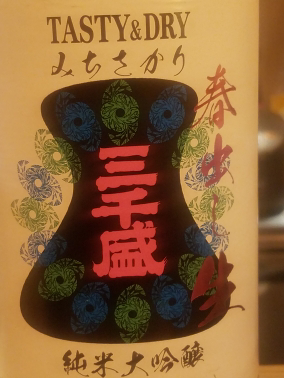 TASTY&DRY
みちさかり
三千盛
春出し生
純米大吟醸